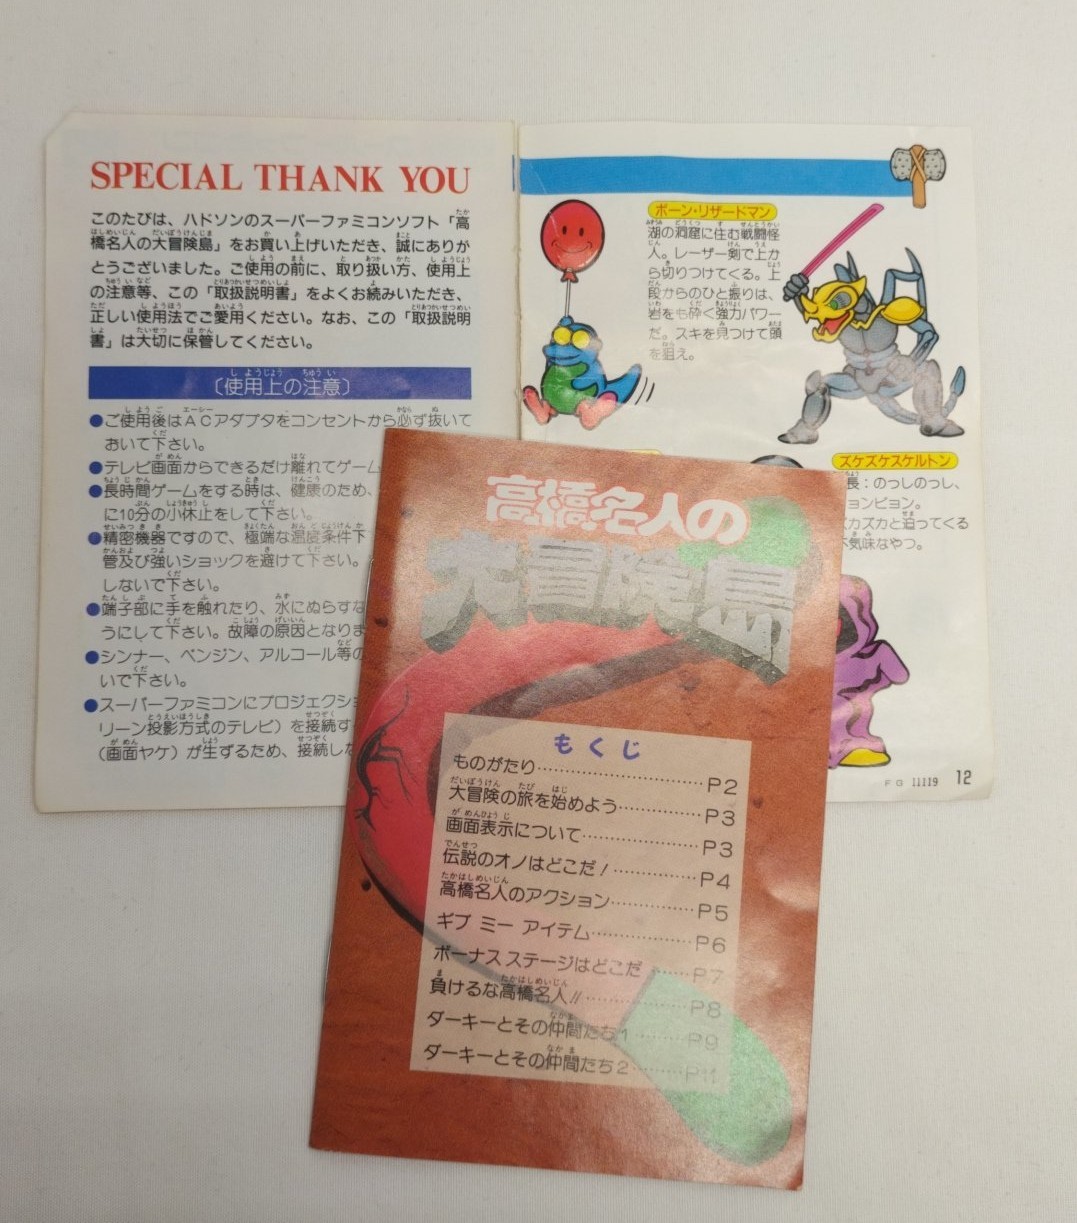 SPECIAL THANK YOU
このたびは、ハドソンのスーパーファミコンソフト「高
橋名人の大冒険島」をお買い上げいただき、誠にありが
とうございました。ご使用の前に、取り扱い方、使用上
の注意等、この「取扱説明書」をよくお読みいただき、
正しい使用法でご愛用ください。なお、この「取扱説明
書」は大切に保管してください。
〔使用上の注意〕
●ご使用後はACアダプタをコンセントから必ず抜いて
おいて下さい。
●テレビ画面からできるだけ離れてゲーム
●長時間ゲームをする時は、健康のため、
に10分の小休止をして下さい。
●精密機器ですので、極端な温度条件下
管及び強いショックを避けて下さい。
しないで下さい。
●端子部に手を触れたり、水にぬらすな
うにして下さい。故障の原因となりま
●シンナー、ベンジン、アルコール等の
いで下さい。
●スーパーファミコンにプロジェクショ
リーン投影方式のテレビ）を接続す
（画面ヤケ）が生ずるため、接続した
ボーン・リザードマン
湖の洞窟に住む戦闘怪
人。レーザー剣で上か
ら切りつけてくる。上
段からのひと振りは、
岩をも砕く強力パワー
だ。スキを見つけて頭
を狙え。
ズケズケスケルトン
長：のっしのっし、
ョンピョン。
カズカと迫ってくる
気味なやつ。
FG 11119 12
高橋名人の
大冒険島
もくじ
ものがたり…………………P2
大冒険の旅を始めよう…………P3
画面表示について……………P3
伝説のオノはどこだ！…………P4
高橋名人のアクション…………P5
ギブ ミー アイテム……………P6
ボーナス ステージはどこだ……P7
負けるな高橋名人!!……………P8
ダーキーとその仲間たち1………P9
ダーキーとその仲間たち2………P11